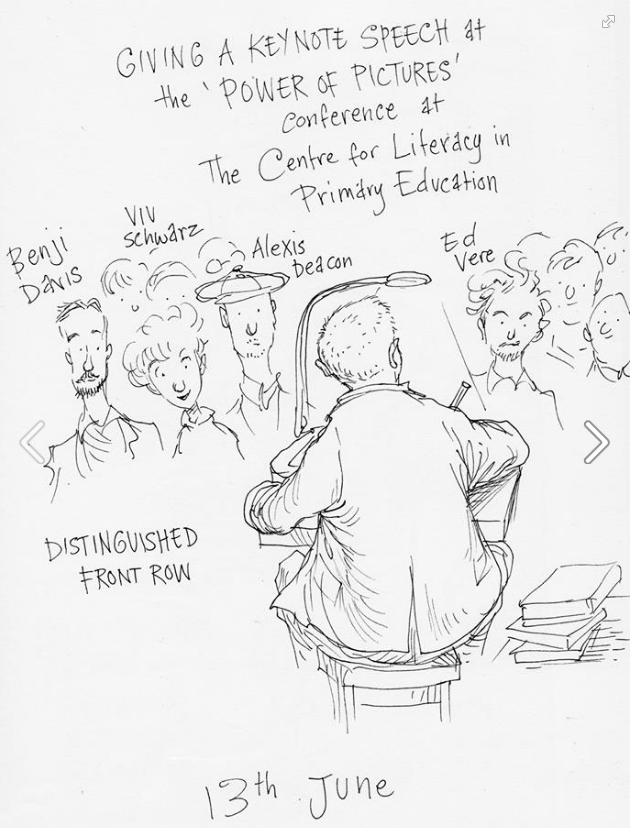 GIVING A KEYNOTE SPEECH at
the 'POWER OF PICTURES'
conference at
The Centre for Literacy in
Primary Education
Benji
Davis
VIV
Schwarz
Alexis
Deacon
Ed
Vere
DISTINGUISHED
FRONT ROW
13th June